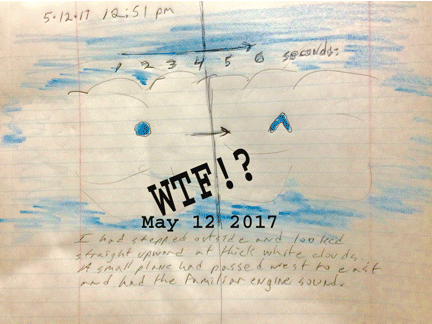 5-12-17 12:51 pm
1 2 3 4 5 6 seconds.
WTF!?
May 12 2017
I had stepped outside and looked
straight upward at thick white clouds.
A small plane had passed west to east
and had the familiar engine sound.